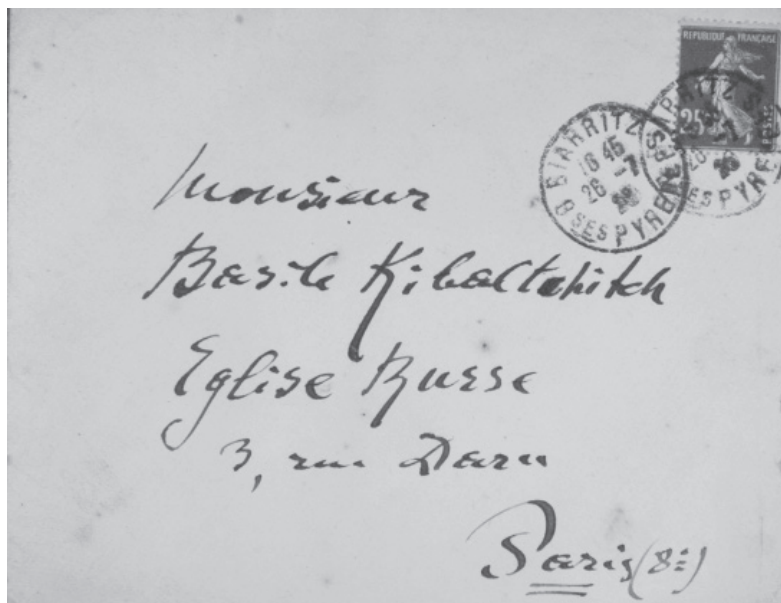 REPUBLIQUE FRANÇAISE
25
BIARRITZ
16 45
26 -7
BSES PYRE
Monsieur
Basile Kibaltchitch
Eglise Russe
3, rue Daru
Paris (8e)